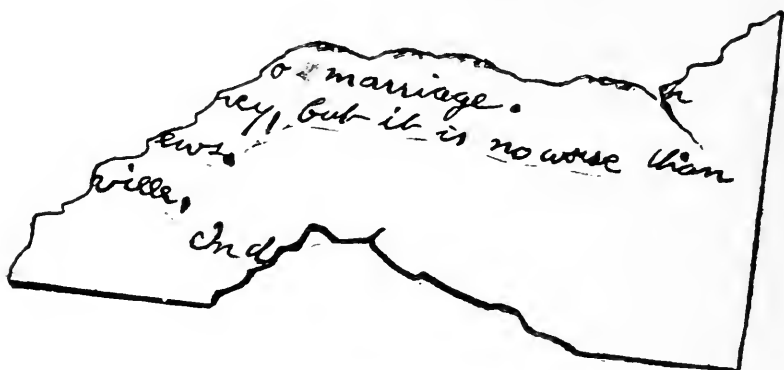 o marriage. n
ney, but it is no worse than
ews.
ville,
Ind